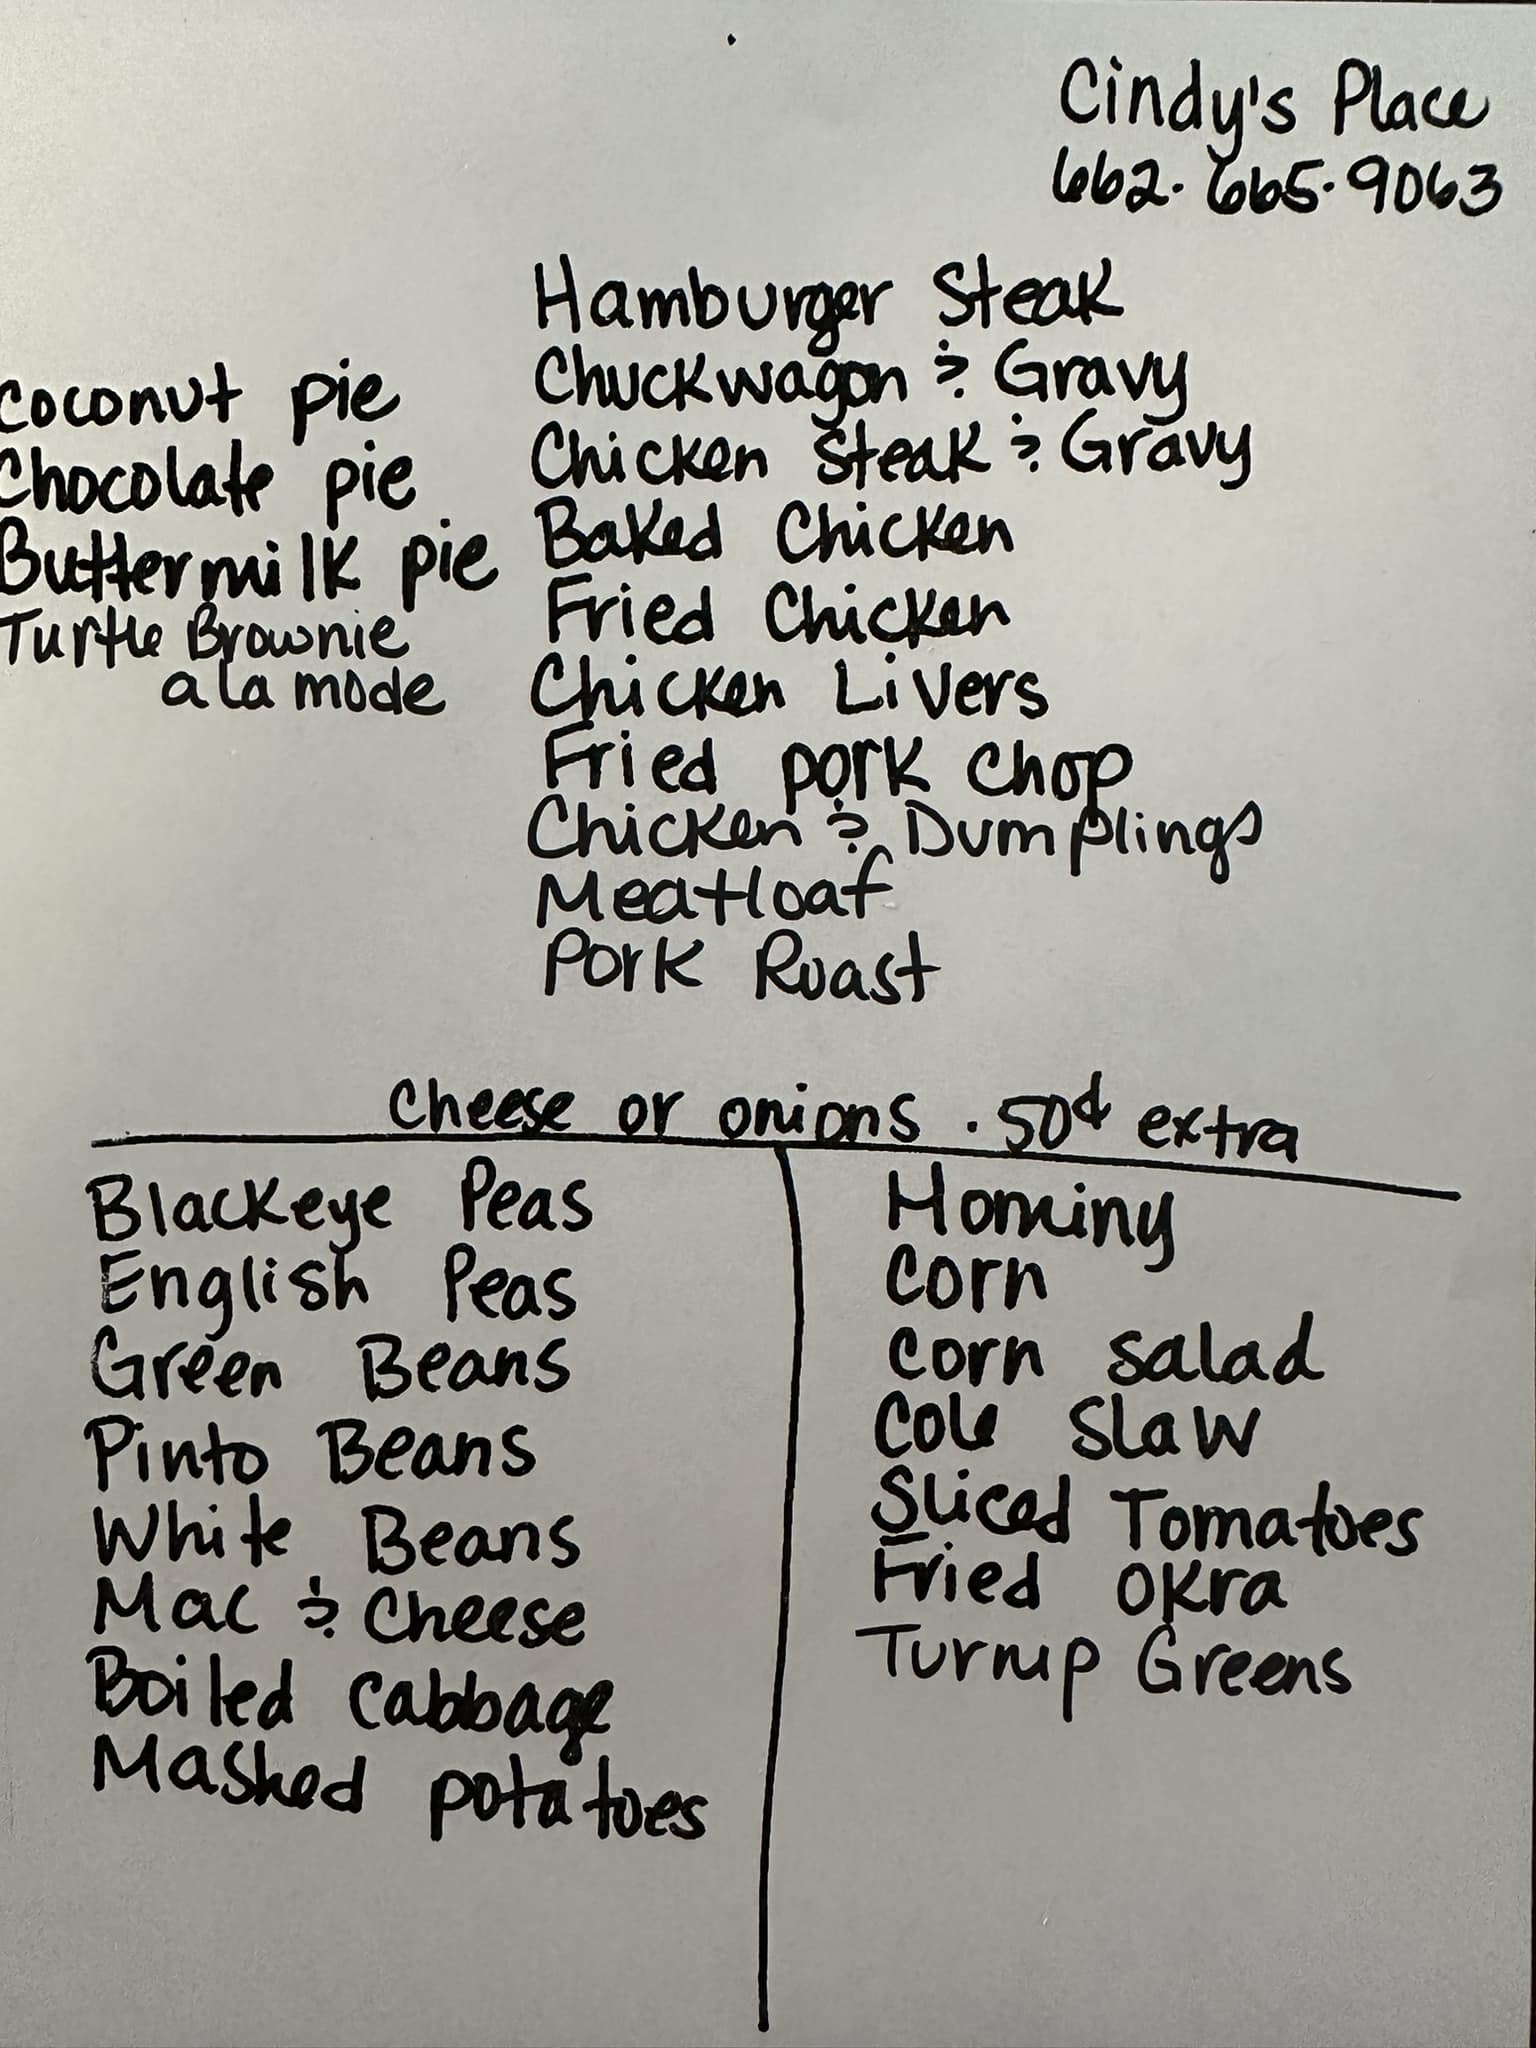 Cindy's Place
662.665.9063
Hamburger Steak
Chuckwagon & Gravy
Chicken Steak & Gravy
Baked Chicken
Fried Chicken
Chicken Livers
Fried pork chop
Chicken & Dumplings
Meatloaf
Pork Roast
Coconut pie
Chocolate pie
Buttermilk pie
Turtle Brownie
a la mode
cheese or onions .50¢ extra
Blackeye Peas
English Peas
Green Beans
Pinto Beans
White Beans
Mac & Cheese
Boiled Cabbage
Mashed potatoes
Hominy
Corn
Corn Salad
Cole Slaw
Sliced Tomatoes
Fried Okra
Turnip Greens